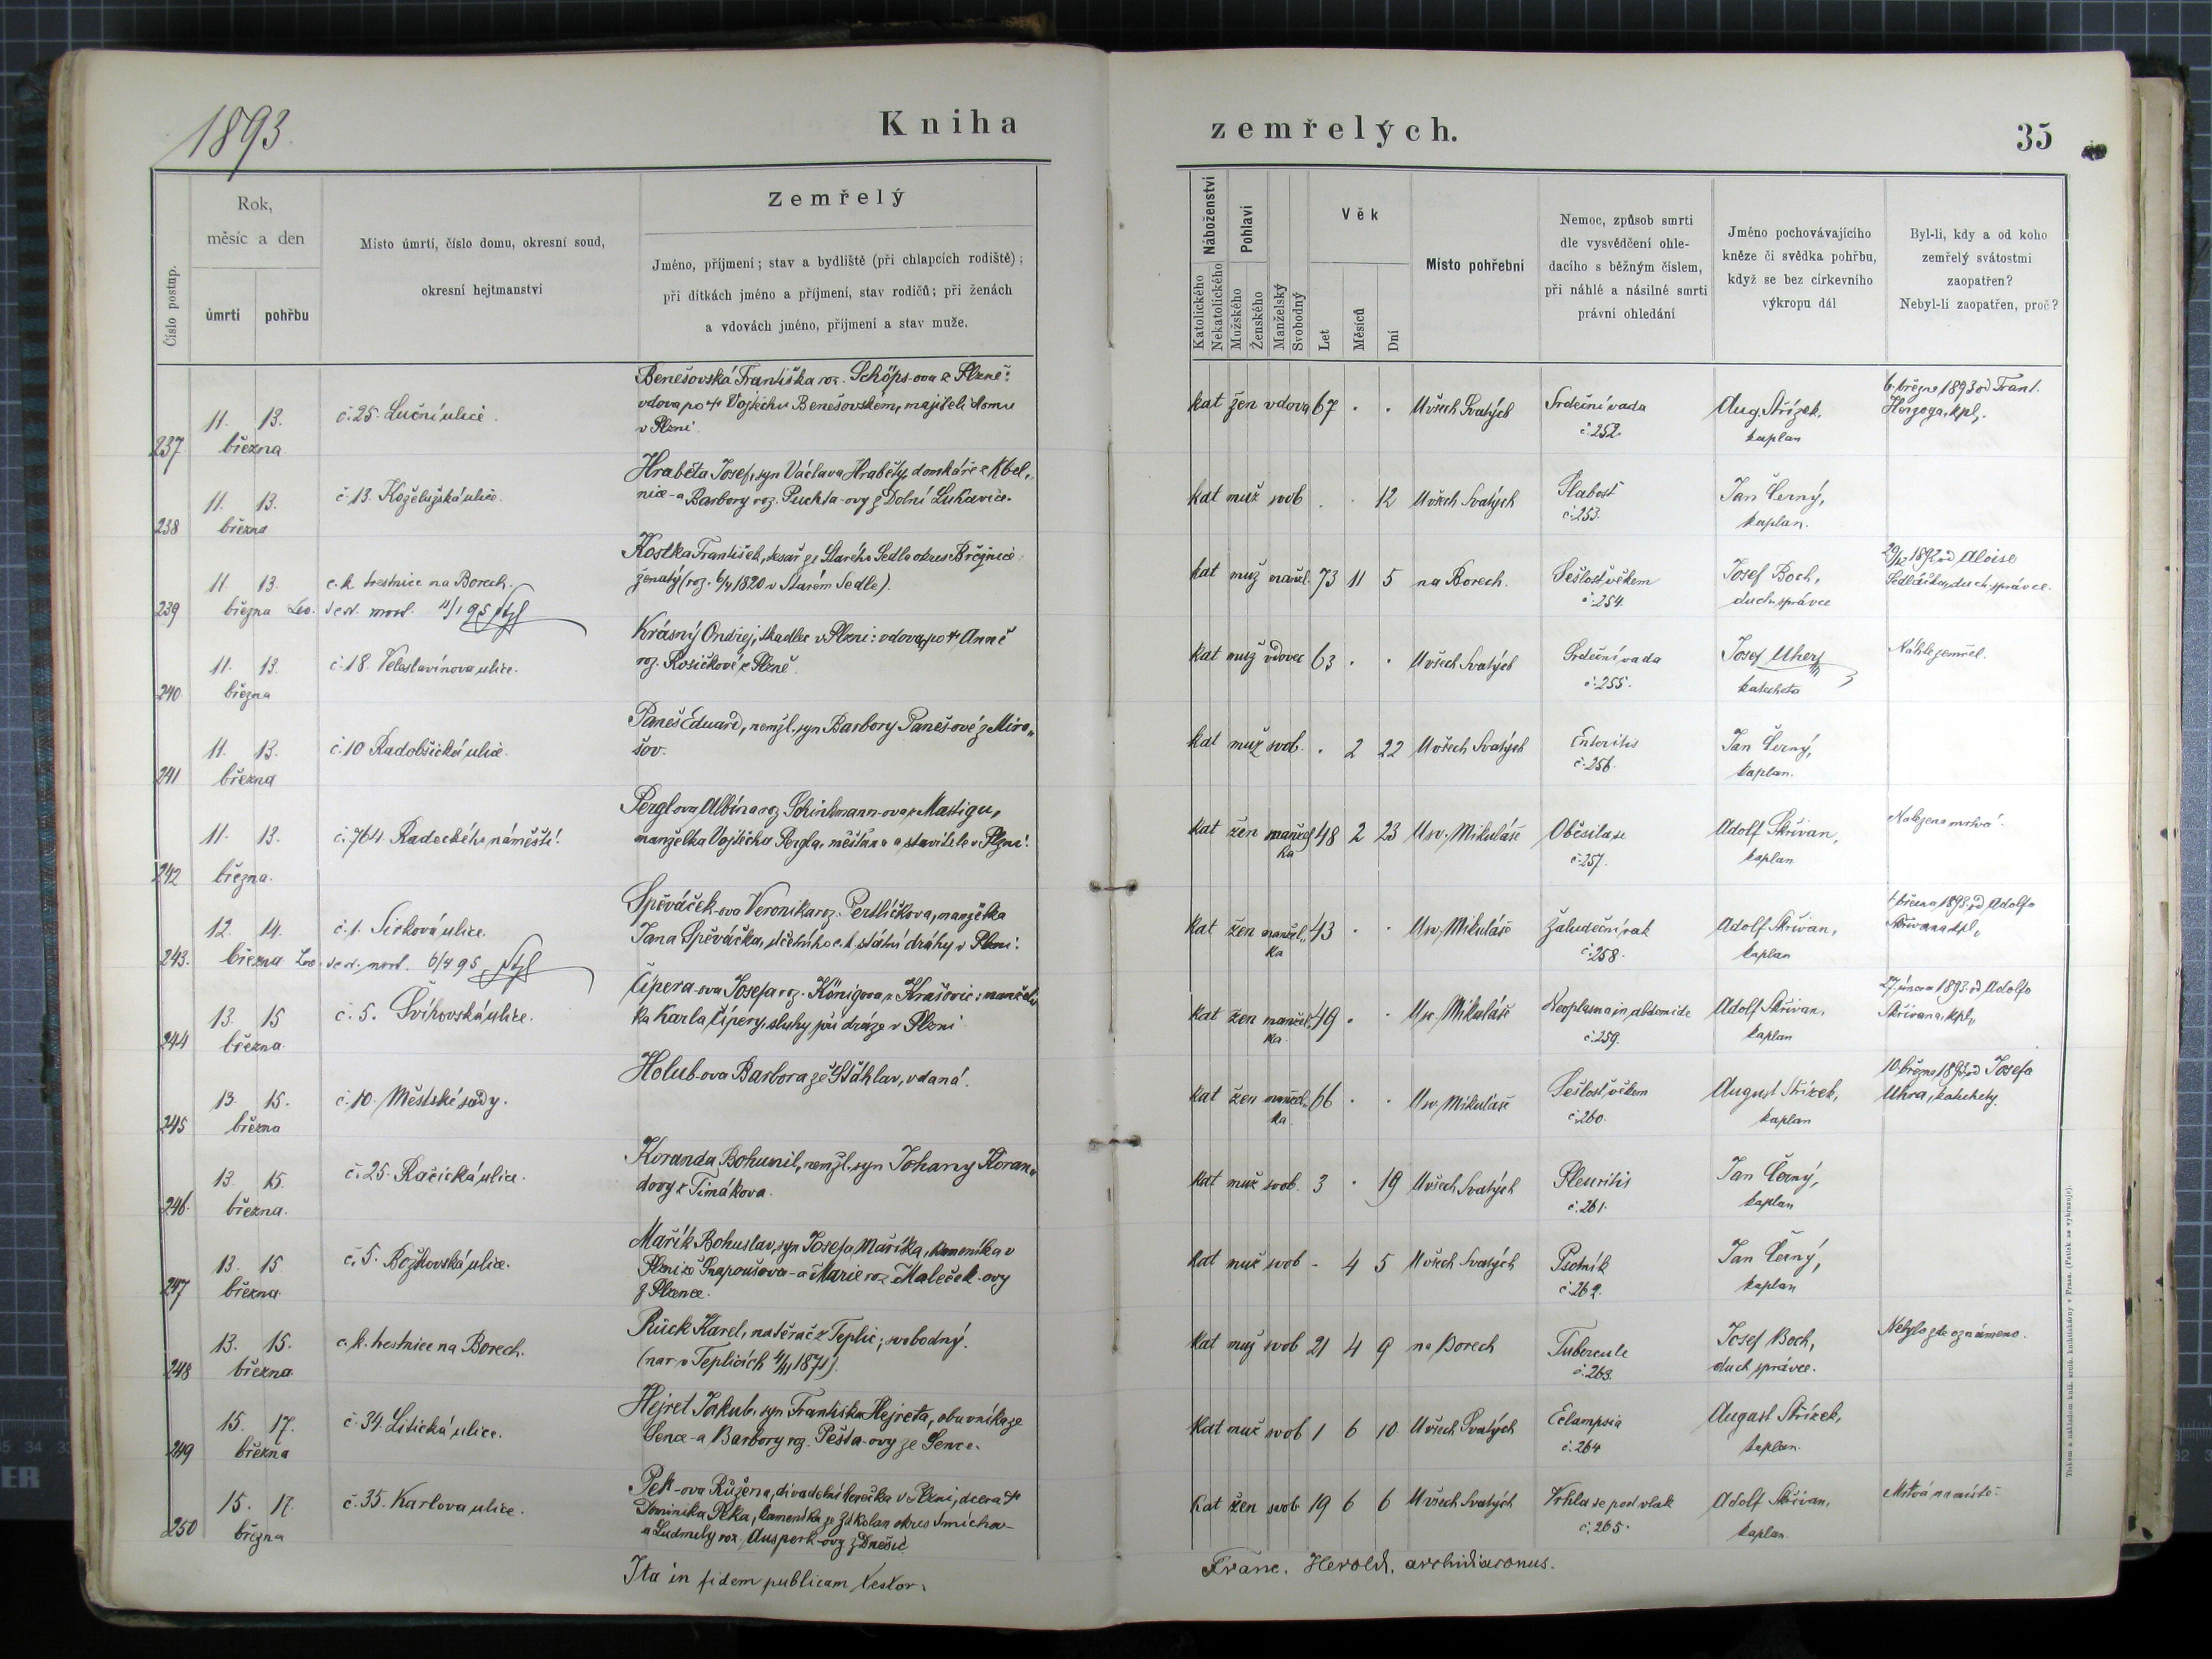 1893
Kniha zemřelých.
35
Číslo postup.
Rok,
měsíc a den
úmrtí
pohřbu
Místo úmrtí, číslo domu, okresní soud,
okresní hejtmanství
Zemřelý
Jméno, příjmení; stav a bydliště (při chlapcích rodiště);
při dítkách jméno a příjmení, stav rodičů; při ženách
a vdovách jméno, příjmení a stav muže.
Náboženství
Katolického
Nekatolického
Pohlaví
Mužského
Ženského
Manželský
Svobodný
Věk
Let
Měsíců
Dní
Místo pohřební
Nemoc, způsob smrti
dle vysvědčení ohle-
dacího s běžným číslem,
při náhlé a násilné smrti
právní ohledání
Jméno pochovávajícího
kněze či svědka pohřbu,
když se bez církevního
výkropu dál
Byl-li, kdy a od koho
zemřelý svátostmi
zaopatřen?
Nebyl-li zaopatřen, proč?
237 11. 13. března
č. 25. Luční ulice.
Benešovská Františka roz. Schöps-ova z Plzně:
vdova po † Vojtěchu Benešovském, majiteli domu
v Plzni
kat žen vdova 67 . . U všech Svatých
Srdeční vada
č. 252.
Aug. Střízek,
kaplan
6. března 1893 od Frant.
Herzoga, kpl.
238 11. 13. března
č. 13. Koželužská ulice.
Hraběta Josef, syn Václava Hraběty, domkáře z Kbel„
nice - a Barbory roz. Puchta-ovy z Dolní Lukavice.
kat muž svob . . 12 U všech Svatých
Slabost
č. 253.
Jan Černý,
kaplan.
239 11. 13. března
c. k. trestnice na Borech.
11/1 95
Kostka František, tesař ze Starého Sedla okres Březnice
ženatý (roz. 6/4 1820 v Starém Sedle).
kat muž manžel. 73 11 5 na Borech.
Sešlost věkem
č. 254.
Josef Boch,
duch. správce
1892 od Aloise
Sedláčka, duch. správce.
240 11. 13. března
č. 18. Veleslavínova ulice.
Krásný Ondřej, tkadlec v Plzni: vdovec po † Anně
roz. Rosičkové z Plzně
kat muž vdovec 63 . . U všech Svatých
Srdeční vada
č. 255.
Josef Uher,
katecheta
Náhle zemřel.
241 11. 13. března
č. 10 Radobčická ulice.
Paneš Eduard, nemžl. syn Barbory Paneš-ové z Miro„
šov.
kat muž svob. . 2 22 U všech Svatých
Enteritis
č. 256.
Jan Černý,
kaplan.
242 11. 13. března.
č. 764. Radeckého náměstí.
Pergl-ova Albína roz. Schinkmann-ova z Mastigu,
manželka Vojtěcha Pergla, měšťana a stavitele v Plzni.
kat žen manžel
ka 48 2 23 U sv. Mikuláše
Oběsila se
č. 257.
Adolf Skřivan,
kaplan
Nalezena mrtva.
243. 12. 14. března
č. 1. Sirková ulice.
6/4 95
Spěváček-ova Veronika roz. Pertlíčkova, manželka
Jana Spěváčka, účetního c. k. státní dráhy v Plzni.
kat žen manžel„
ka 43 . . U sv. Mikuláše
Žaludeční rak
č. 258.
Adolf Skřivan,
kaplan
března 1893 od Adolfa
Skřivana kpl.
244 13. 15 března.
č. 5. Švihovská ulice.
Čipera-ova Josefa roz. Königova z Krašovic: manžel„
ka Karla Čipery, sluhy při dráze v Plzni
kat žen manžel.
ka 49 . . U sv. Mikuláše
Neoplasma in abdomide
č. 259.
Adolf Skřivan,
kaplan
27. února 1893. od Adolfa
Skřivana, kpl.
245 13. 15. března
č. 10. Městské sady.
Holub-ova Barbora ze Šťáhlav, vdaná.
kat žen manžel„
ka 66 . . U sv. Mikuláše
Sešlost věkem
č. 260.
August Střízek,
kaplan
10. března 1893 od Josefa
Uhra, katechety.
246. 13. 15. března.
č. 25. Račická ulice.
Koranda Bohumil, nemžl. syn Johany Koran„
dovy z Timákova.
kat muž svob. 3 . 19 U všech Svatých
Pleuritis
č. 261.
Jan Černý,
kaplan
247 13. 15. března.
č. 5. Božkovská ulice.
Mařík Bohuslav, syn Josefa Maříka, kameníka v
Plzni ze Snapoušova - a Marie roz. Maleček-ovy
z Plzence.
kat muž svob - 4 5 U všech Svatých
Psotník
č. 262.
Jan Černý,
kaplan
248 13. 15. března
c. k. trestnice na Borech.
Rück Karel, natěrač z Teplic; svobodný.
(nar. v Teplicích 4/11 1871).
kat muž svob 21 4 9 na Borech
Tubercule
č. 263.
Josef Boch,
duch správce.
Nebylo zde oznámeno.
249 15. 17. března
č. 34 Litická ulice.
Hejret Jakub, syn Františka Hejreta, obuvníka ze
Sence - a Barbory roz. Pešta-ovy ze Sence.
kat muž svob 1 6 10 U všech Svatých
Eclampsia
č. 264
August Střízek,
kaplan.
250 15. 17. března
č. 35. Karlova ulice.
Pek-ova Růžena, divadelní herečka v Plzni, dcera †
Dominika Peka, kameníka ze Zákolan okres Smíchov -
a Ludmily roz. Ausperk-ovy z Dnešic.
kat žen svob 19 6 6 U všech Svatých
Vrhla se pod vlak
č. 265.
Adolf Skřivan,
kaplan.
Mrtvá na místě.
Ita in fidem publicam testor.
Franc. Herold, archidiaconus.